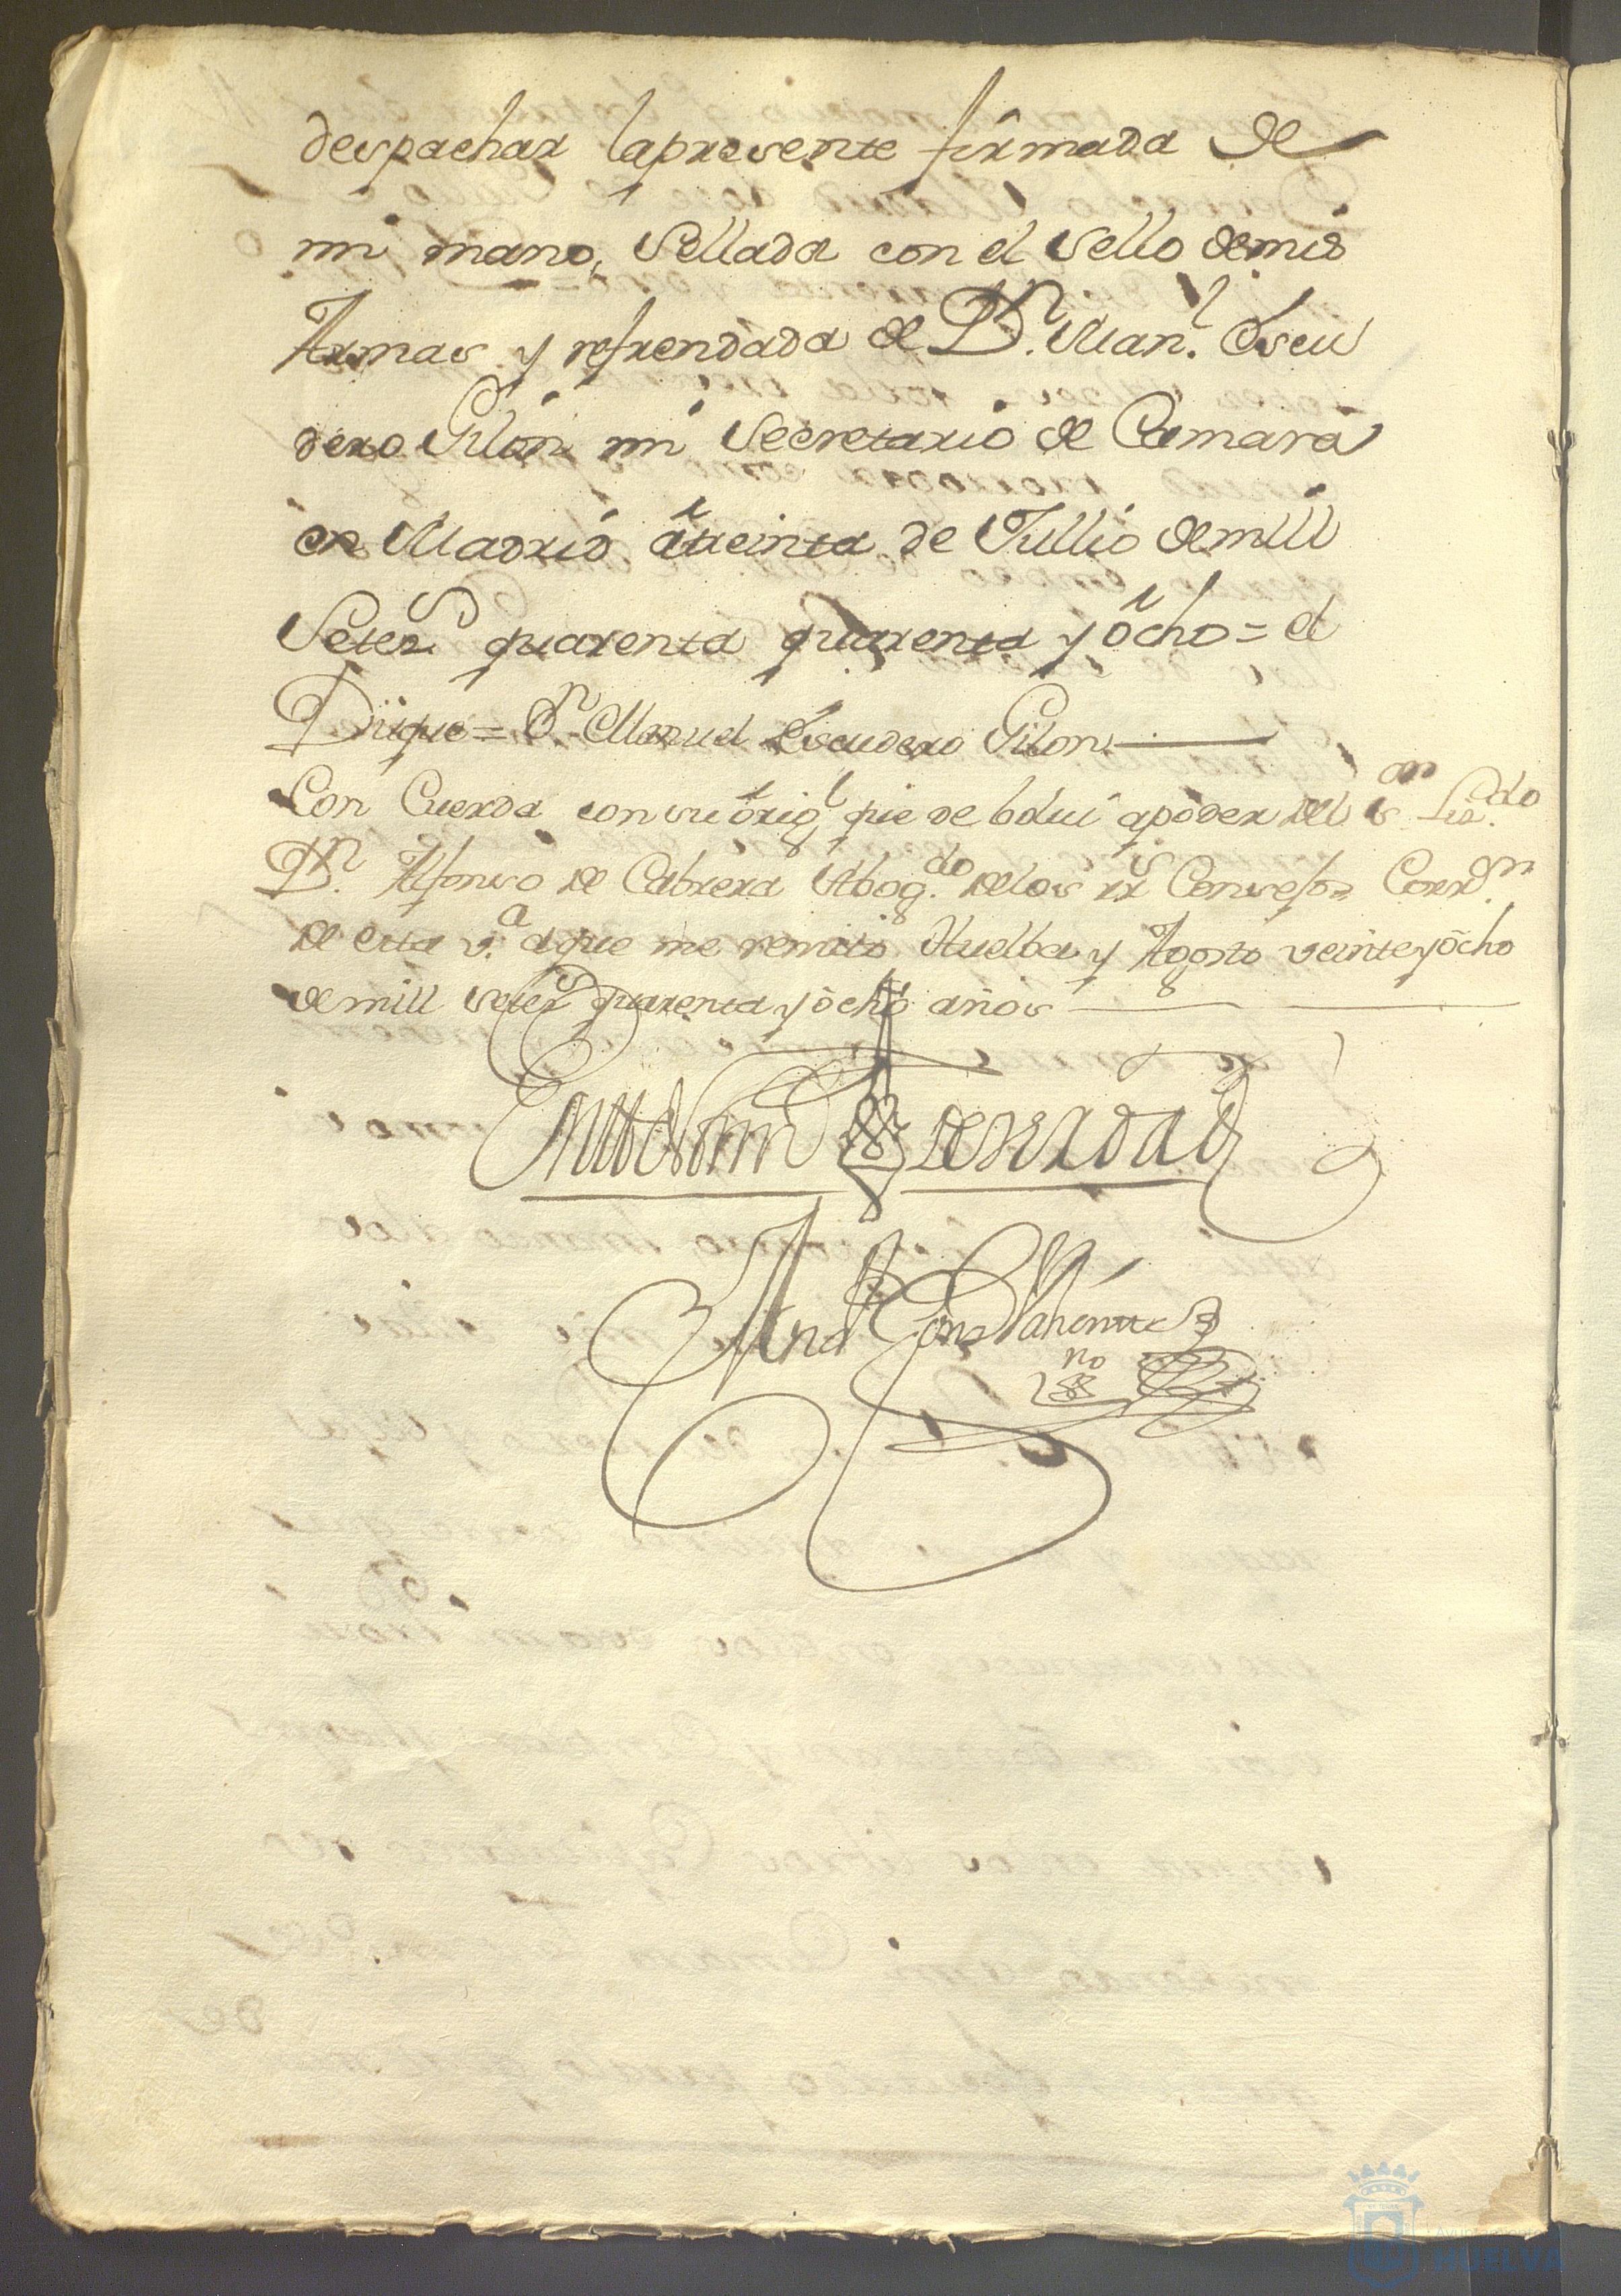 despachar lapresente firmada de
mi mano, Sellada con el Sello de mis
Armas y refrendada de Dn. Manl. Escu
dero Gilon mi Secretario de Camara
en Madrid â treinta de Jullio de mill
Setezs quarenta quarenta y ôcho = el
Duque = Dn Manuel Escudero Gilon
Con Cuerda con su ôrigl que de bolui apoder del sr Lizdo
Dn. Alfonso de Cabrera Abogdo. de los rrs Consejos Corrdn.
de esta va. a que me remito Huelba y Agosto veinte y ôcho
de mill setezs quarenta y ôcho años
En testimo de verdad
no
HUELVA